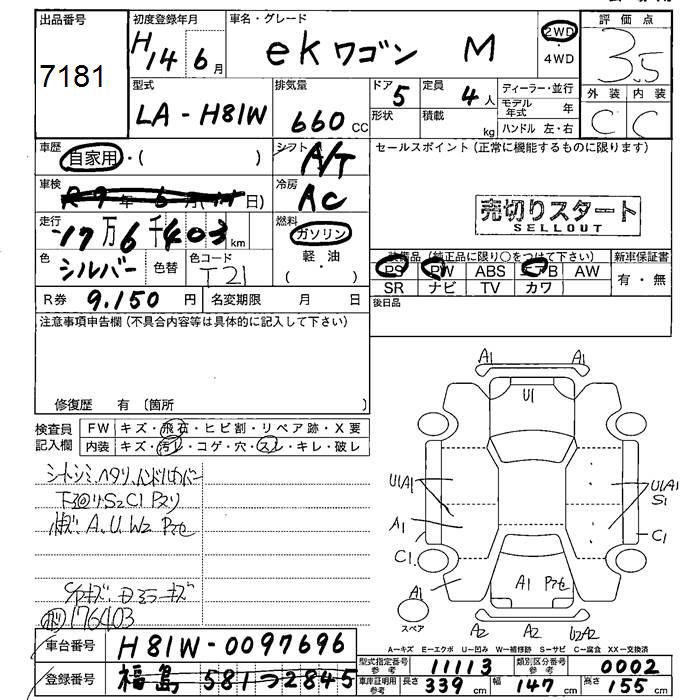 出品番号
7181
初度登録年月
H14 6月
車名・グレード
ekワゴン M
2WD
・
4WD
評価点
3.5
外装 内装
C C
型式
LA-H81W
排気量
660 CC
ドア 5
形状
定員 4人
積載 kg
ディーラー・並行
モデル年式 年
ハンドル 左・右
車歴 自家用・( )
シフト A/T
車検
冷房 AC
走行 17万6千403km
燃料
ガソリン
・
軽・油
色 シルバー 色替
色コード T21
R券 9.150円 名変期限 月 日
セールスポイント(正常に機能するものに限ります)
売切りスタート
SELLOUT
装備品(純正品に限り○をつけて下さい)
PS PW ABS エアB AW
SR ナビ TV カワ
新車保証書
有・無
後日品
注意事項申告欄(不具合内容等は具体的に記入して下さい)
修復歴 有〔箇所
検査員記入欄
FW キズ・飛石・ヒビ割・リペア跡・X要
内装 キズ・汚レ・コゲ・穴・スレ・キレ・破レ
シートシミ、ヘタリ、ハンドルカバー
176403
A1 A1
U1
U1A1
U1A1
S1
A1
C1
C1
A1
A1
A2 A2 U2A2
スペア
A-キズ E-エクボ U-凹み W-補修跡 S-サビ C-腐食 XX-交換済
車台番号 H81W-0097696
登録番号 福島 581 つ 2845
型式指定番号
参考 11113
類別区分番号
参考 0002
車庫証明用
参考 長さ 339cm 幅 147cm 高さ 155cm